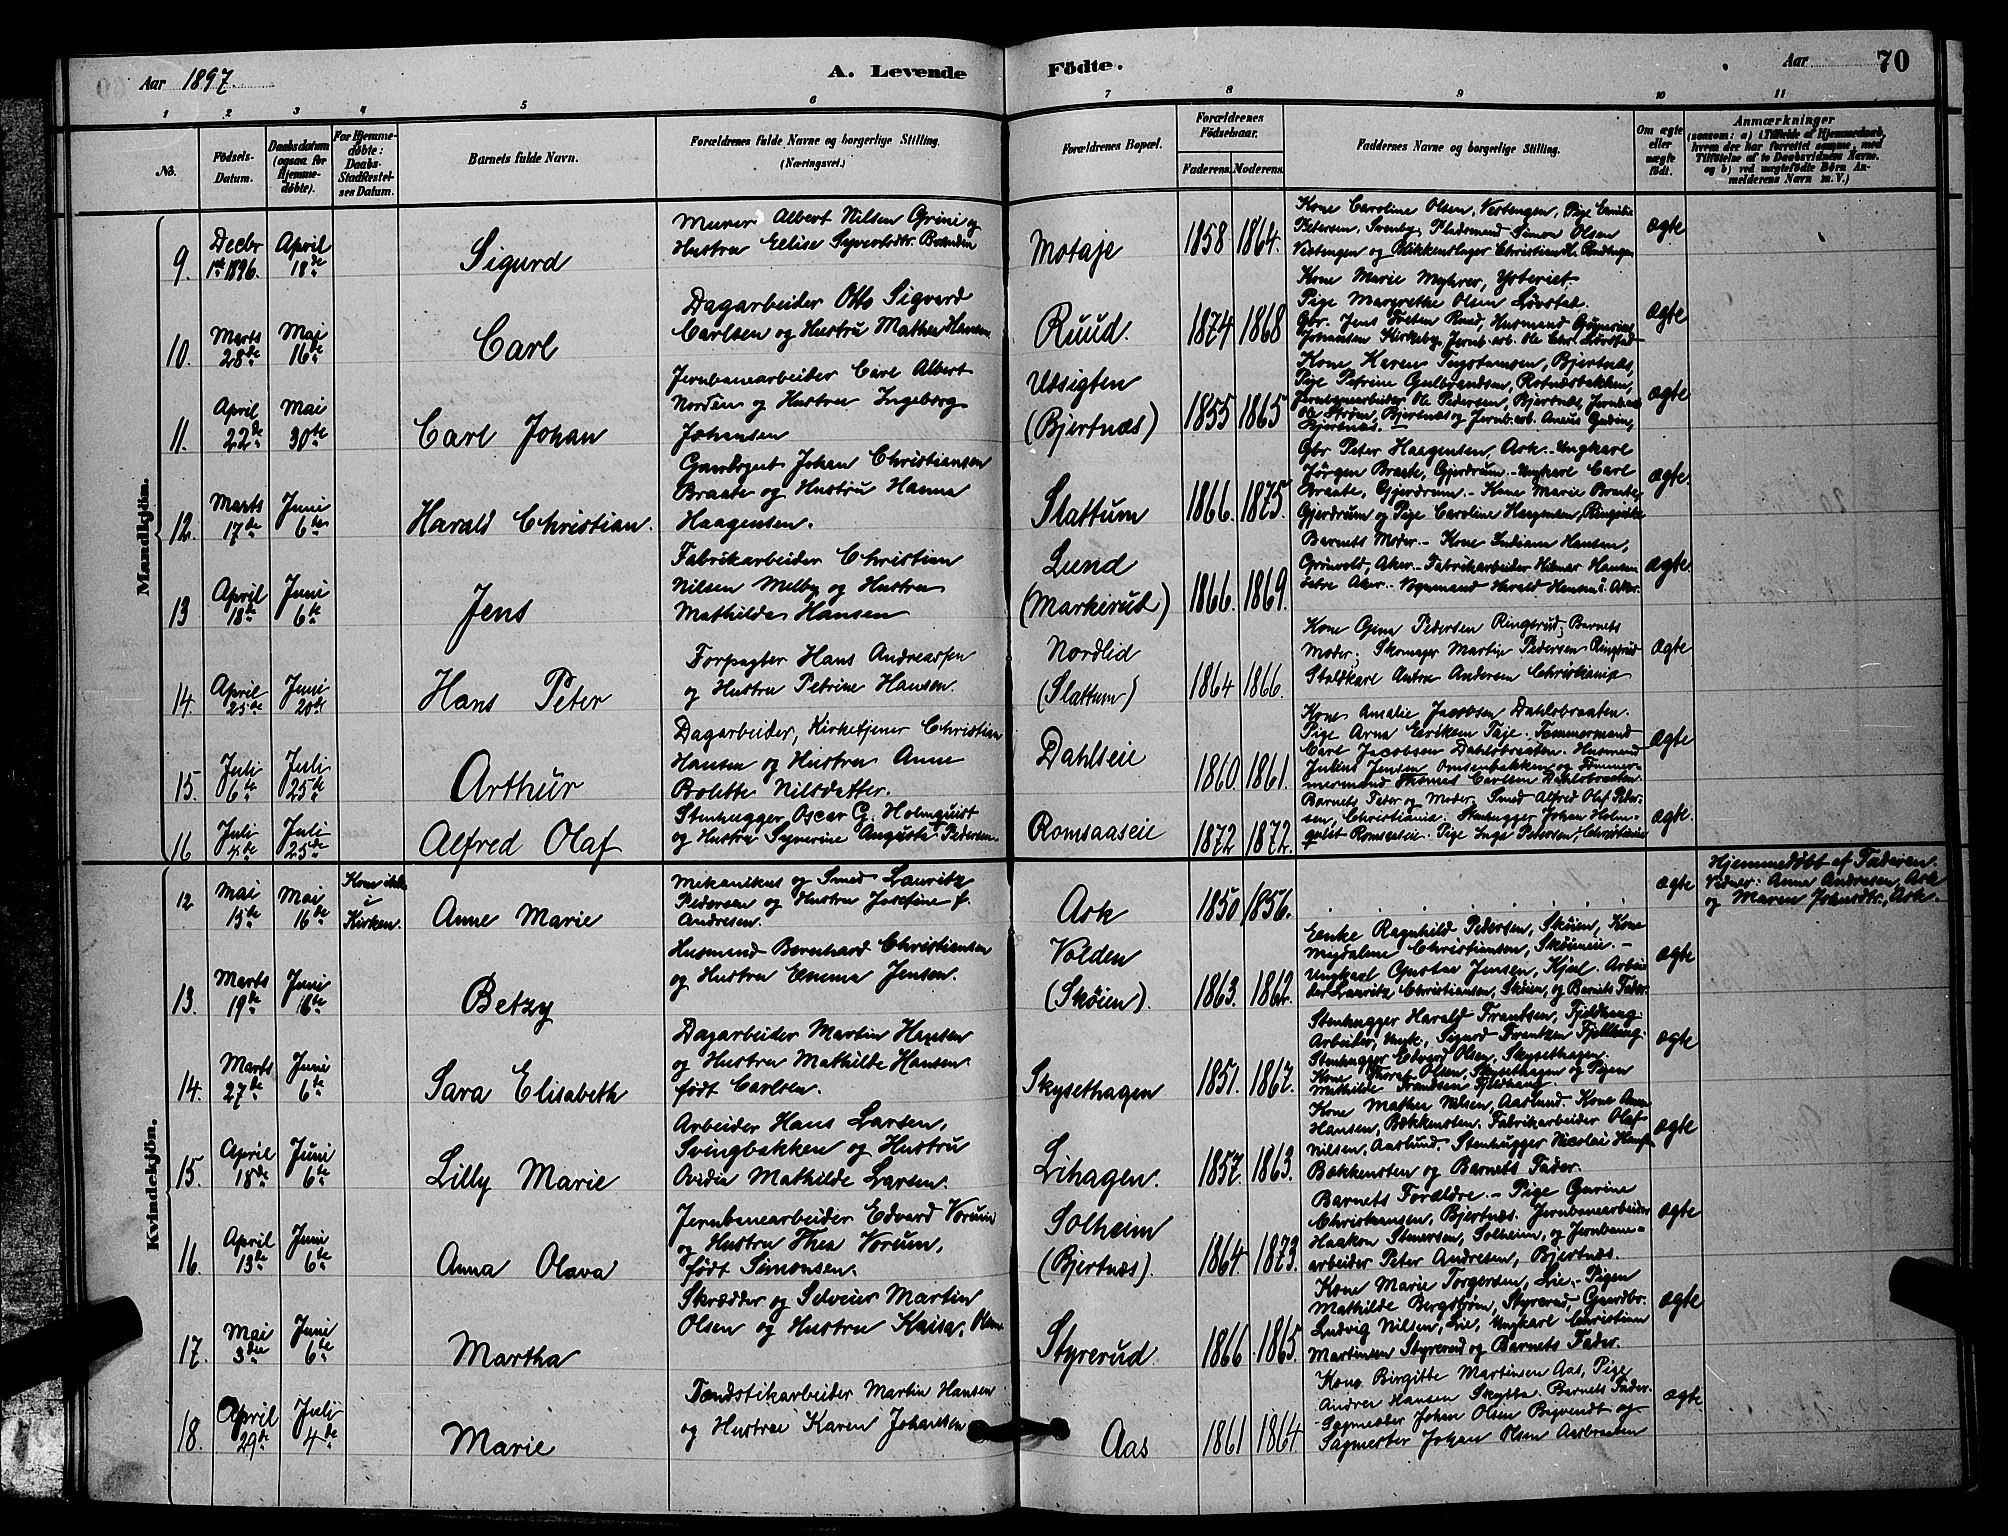 Aar 1897.
A. Levende Födte.
Aar
70
1 2 3 4 5 6 7 8 9 10 11
No.
Födsels-Datum.
Daabsdatum (ogsaa for Hjemmedöbte).
For Hjemmedöbte: Daabs-Stadfæstelses Datum.
Barnets fulde Navn.
Forældrenes fulde Navne og borgerlige Stilling. (Næringsvei.)
Forældrenes Bopæl.
Forældrenes Födselsaar.
Faderens. Moderens.
Faddernes Navne og borgerlige Stilling.
Om ægte eller uægte födt.
Anmærkninger
(saasom: a) i Tilfælde af Hjemmedaab,
hvem der har forrettet samme, med
Tilföielse af to Daabsvidners Navne.
og b) ved uægtefödte Börn An-
melderens Navn m. V.)
Mandkjön.
9.
Decbr 1ste 1896.
April 18de
Sigurd
Murer Albert Nilsen Grini og
Hustru Ellise Syvertsdtr.
Motaje
1858 1864.
Kone Caroline Olsen, Vestengen, Pige
Petersen, Svenby, Simon Olsen
Vestengen og Blikkenslager Christian
ægte
10.
Marts 28de
Mai 16de
Carl
Dagarbeider Otto Sigvard
Carlsen og Hustru Mathea Hansen
Ruud.
1874 1868
Kone Marie Myhrer, Ysteriet.
Pige Margrethe Olsen Løvstad.
Gbr. Jens Ruud, Husmand
Johansen Kirkeby, Jernb.arb. Ole Chr. Løvstad
ægte
11.
April 22de
Mai 30te
Carl Johan
Jernbanearbeider Carl Albert
Norden og Hustru Ingeborg
Johansen
Udsigten
(Bjertnæs)
1855 1865
Kone Karen Bjertnæs,
Pige Petrine Gulbrandsen, Rotnæsbakken,
Jernbanearbeider Ole Pedersen, Bjertnæs,
Ole Strøm, Bjertnæs og Jernb.arb.
Bjertnæs.
ægte
12.
Marts 17de
Juni 6te
Harald Christian.
Gaardbrugt Johan Christiansen
Braate og Hustru Hanna
Haagensen.
Slattum
1866. 1875.
Gbr Peter Haagensen, Ask. Ungkarl
Jörgen Braate, Gjerdrum. Ungkarl Carl
Braate, Gjerdrum. Kone Marie Braate,
Gjerdrum og Pige Caroline Haagensen,
ægte.
13
April 18de
Juni 6te
Jens
Fabrikarbeider Christian
Nilsen Melby og Hustru
Mathilde Hansen
Lund
(Markerud)
1866. 1869.
Barnets Moder. Kone Hansen,
Aker. Fabrikarbeider Hilmar Hansen
østre Aker. Harald Hansen i Aker.
ægte
14.
April 25de
Juni 20de
Hans Peter
Forpagter Hans Andreassen
og Hustru Petrine Hansen.
Nordlid
(Slattum)
1864 1866.
Kone Gina Pedersen Ringerud, Barnets
Moder, Skomager Martin Pedersen Ringerud
Staldkarl Andersen Christiania
ægte
15.
Juli 6te
Juli 25de
Arthur
Dagarbeider, Kirketjener Christian
Hansen og Hustru Anne
Bolette Nilsdatter.
Dahlseie
1860 1861.
Kone Amalie Jacobsen Dahlsbraaten.
Pige Tømmermand
Carl Jacobsen Dahlsbraaten. Husmand
Julius Jensen og Tømmer-
mermand Thomas Carlsen Dahlsbraaten.
ægte
16
Juli 4de
Juli 25de
Alfred Olaf
Stenhugger Oscar G. Holmquist
og Hustru Syverine Auguste Pedersen
Romsaaseie
1872 1872.
Barnets Fader og Moder. Smed Alfred Olaf Peder-
sen, Christiania. Stenhugger Johan Holm-
quist Romsaaseie. Pige Inga Petersen, Christiania
ægte.
Kvindekjön.
12
Mai 15de
Mai 16de
Kom ikke
i
Kirken.
Anne Marie
Mekanikus og Smed Lauritz
Pedersen og Hustru Josefine f.
Andresen.
Ask
1850 1856.
ægte
Hjemmedöbt af Faderen.
Vidner: Anne Andresen, Ask
og Maren Johnsdtr., Ask.
13.
Marts 19de
Juni 16de
Betzy
Husmand Bernhard Christiansen
og Hustru Emma Jensen.
Volden
(Skøien).
1863. 1862.
Enke Ragnhild Pedersen, Skøien, Kone
Magdalene Christiansen, Skøieneie.
Ungkarl Gustav Jensen, Kjul. Arbei-
der Lauritz Christiansen, Skøien, og Barnets Fader.
ægte
14.
Marts 27de
Juni 6te
Sara Elisabeth
Dagarbeider Martin Hansen
og Hustru Mathilde Hansen
født Carlsen.
Skysethagen
1851. 1867.
Stenhugger Harald Frantsen, Fjeldhaug.
Arbeider, Ungk. Sigurd Frantzen Fjeldhaug.
Stenhugger Edvard Olsen, Skysethagen.
Kone Olsen, Skysethagen og Pigen
Mathilde Frandsen Fjeldhaug.
ægte
15.
April 18de
Juni 6te
Lilly Marie
Arbeider Hans Larsen,
Svingbakken og Hustru
Ovidia Mathilde Larsen.
Lihagen.
1857. 1863.
Kone Mathea Nilsen, Aaslund. Kone Anna
Hansen, Bakkensten. Fabrikarbeider Olaf
Nilsen, Aaslund. Stenhugger Nicolai Hansen
Bakkensten og Barnets Fader.
ægte
16.
April 13de
Juni 6te
Anna Olava
Jernbanearbeider Edvard Vorum
og Hustru Thea Vorum,
født Simonsen.
Solheim
(Bjertnæs).
1864. 1873.
Barnets Forældre. Pige Gurine
Christiansen, Bjertnæs. Jernbanearbeider
Haakon Stenersen, Solheim, og Jernbane-
arbeider Peter Andresen, Bjertnæs.
ægte
17.
Mai 3die
Juni 6te
Martha
Skrædder og Selveier Martin
Olsen og Hustru Kaisa Olsen
Styrerud
1866. 1865.
Kone Marie Torgersen, Lie. Pigen
Mathilde Bergstrøm, Styrerud. Gaardbr.
Ludvig Nilsen, Lie, Ungkarl Christian
Martinsen Styrerud og Barnets Fader.
ægte
18.
April 29de
Juli 4de
Marie
Tændstikarbeider Martin Hansen
og Hustru Karen Johansen
Aas
1861 1864
Kone Birgitte Martinsen Aas, Pige
Andrea Hansen Skytta. Barnets Fader.
Sagmester Johan Olsen og
Sagmester Johan Olsen Aasbraaten
ægte